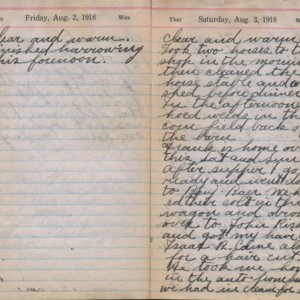 Friday, Aug. 2, 1918
Wea
Clear and warm.
Finished harrowing
this forenoon.
Ther
Saturday, Aug. 3, 1918
W
Clear and warm
Took two horses to t
shop in the mornin
then cleaned the
horse stable and
shed before dinner
In the afternoon
hoed weeds in the
corn field back of
the barn
Frank is home ov
this sat and sun
After supper I go
ready and went
to Ben
ed their colt in the
wagon and drov
over to John Riss
and got my hair
Isaac R.
for a hair cut
He took one hor
in the auto
we had ice cream